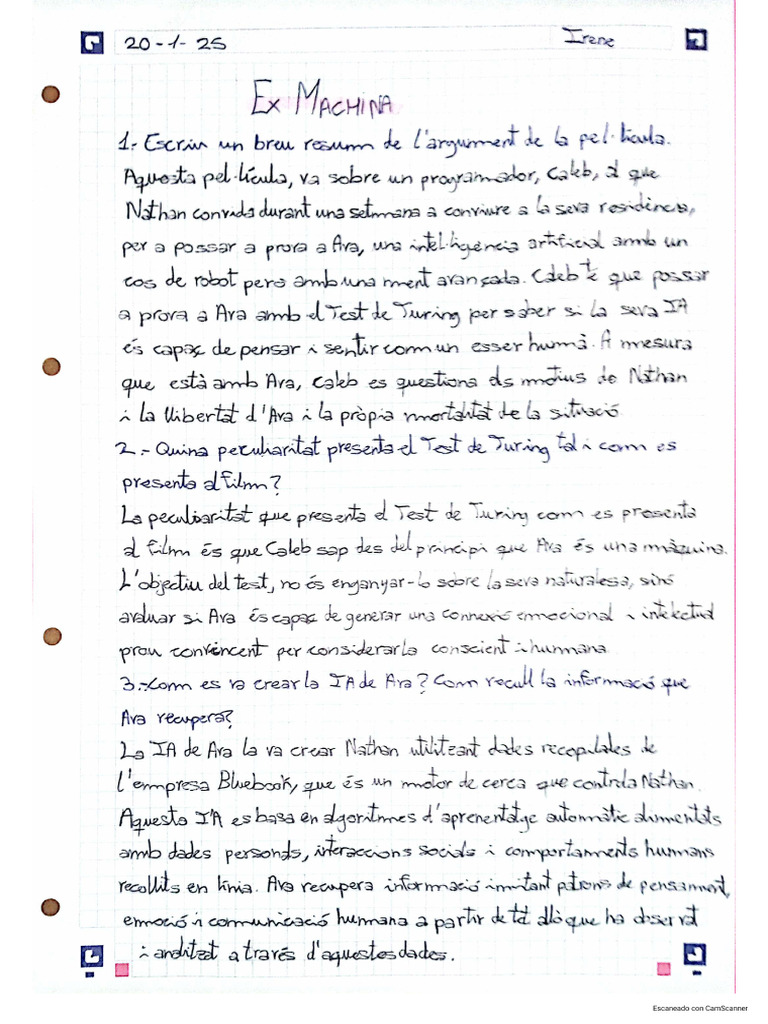 20-1-25
Irene
EX MACHINA
1.- Escriu un breu resum de l'argument de la pel·lícula.
Aquesta pel·lícula, va sobre un programador, Caleb, al que
Nathan convida durant una setmana a conviure a la seva residència,
per a possar a prova a Ava, una intel·ligència artificial amb un
cos de robot pero amb una ment avançada. Caleb té que possar
a prova a Ava amb el Test de Turing per saber si la seva IA
és capaç de pensar i sentir com un esser humà. A mesura
que està amb Ava, Caleb es questiona els motius de Nathan
i la llibertat d'Ava i la pròpia mortalitat de la situació
2.- Quina peculiaritat presenta el Test de Turing tal i com es
presenta al film?
La peculiaritat que presenta el Test de Turing com es presenta
al film és que Caleb sap des del principi que Ava és una màquina.
L'objectiu del test, no és enganyar-lo sobre la seva naturalesa, sinó
avaluar si Ava és capaç de generar una connexió emocional i intelectual
prou convincent per considerarla conscient i humana.
3.- Com es va crear la IA de Ava? Com recull la informació que
Ava recupera?
La IA de Ava la va crear Nathan utilitzant dades recopilades de
l'empresa Bluebook, que és un motor de cerca que controla Nathan.
Aquesta IA es basa en algoritmes d'aprenentatge automàtic alimentats
amb dades personals, interaccions socials i comportaments humans
recollits en línia. Ava recupera informació imitant patrons de pensament,
emoció i comunicació humana a partir de tot allò que ha observat
i analitzat a través d'aquestes dades.
Escaneado con CamScanner